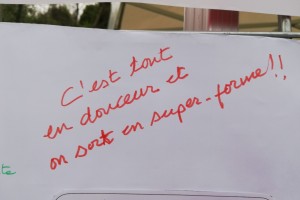 C'est tout
en douceur et
on sort en super-forme!!
te